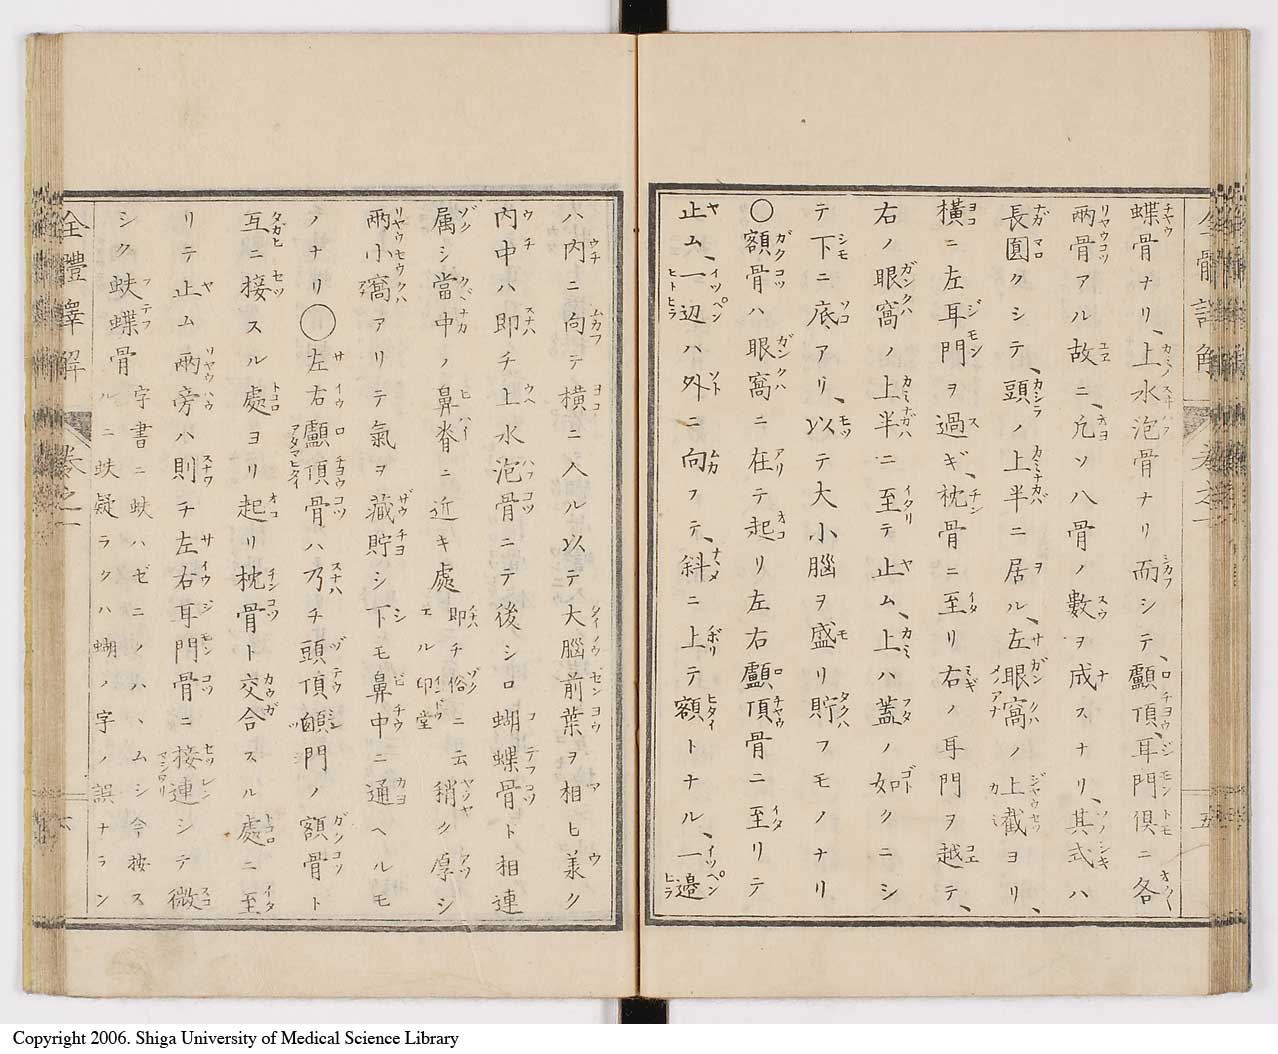 蝶骨ナリ、上水泡骨ナリ而シテ、顱頂、耳門倶ニ各
兩骨アル故ニ、凡ソ八骨ノ數ヲ成スナリ、其式ハ
長圓クシテ、頭ノ上半ニ居ル、左眼窩ノ上截ヨリ、
橫ニ左耳門ヲ過ギ、枕骨ニ至リ右ノ耳門ヲ越テ、
右ノ眼窩ノ上半ニ至テ止ム、上ハ蓋ノ如クニシ
テ下ニ底アリ、以テ大小腦ヲ盛リ貯フモノナリ
〇額骨ハ眼窩ニ在テ起リ左右顱頂骨ニ至リテ
止ム、一辺ハ外ニ向フテ、斜ニ上テ額トナル、一邉
ハ內ニ向テ橫ニ入ル以テ大腦前葉ヲ相ヒ羕ク
內中ハ即チ上水泡骨ニテ後シロ蝴蝶骨ト相連
属シ當中ノ鼻脊ニ近キ處即チ俗ニ云エル印堂稍ク厚シ
兩小窩アリテ氣ヲ藏貯シ下モ鼻中ニ通ヘルモ
ノナリ〇左右顱頂骨ハ乃チ頭頂顖門ノ額骨ト
互ニ接スル處ヨリ起リ枕骨ト交合スル處ニ至
リテ止ム兩旁ハ則チ左右耳門骨ニ接連シテ微
シク蚨蝶骨字書ニ蚨ハゼニノハヽムシ今按ス
ルニ蚨疑ラクハ蝴ノ字ノ誤ナラン
全體譯解
卷之一
五
六
Copyright 2006. Shiga University of Medical Science Library